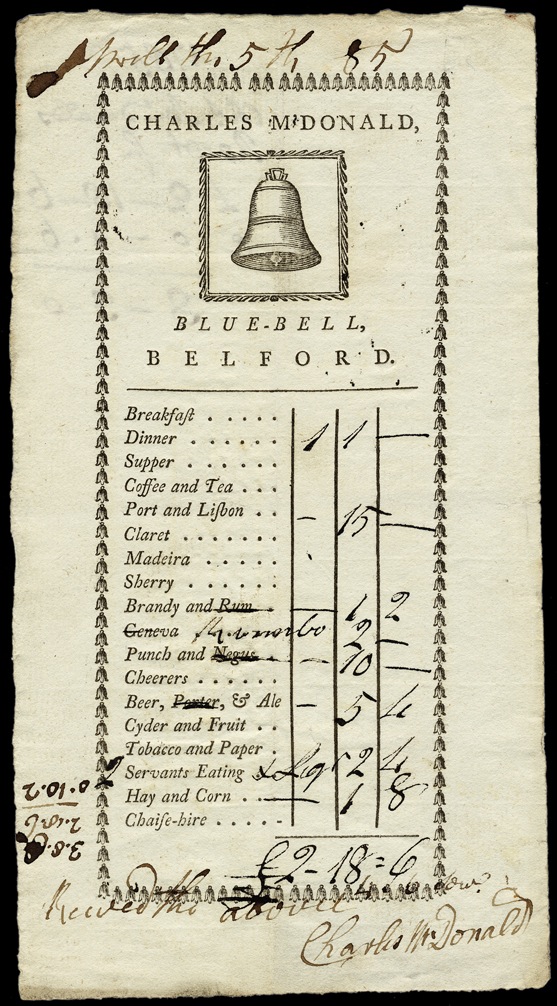 Aprill the 5th 85
CHARLES McDONALD,
BLUE-BELL,
BELFORD.
Breakfaſt . . . . .
Dinner . . . . . . 1 1 —
Supper . . . . . .
Coffee and Tea . . .
Port and Liſbon . . – 15 —
Claret . . . . . . .
Madeira . . . . .
Sherry . . . . . .
Brandy and Rum — 1 2
Geneva 2 –
Punch and Negus – 10 —
Cheerers . . . . . .
Beer, Porter, & Ale – 5 4
Cyder and Fruit . .
Tobacco and Paper .
Servants Eating & 2 4
Hay and Corn . . — 1 8
Chaiſe-hire . . . . .
£2 – 18 = 6
0.10.2
2.18.6
3.8.8
Received the above
Charles McDonald